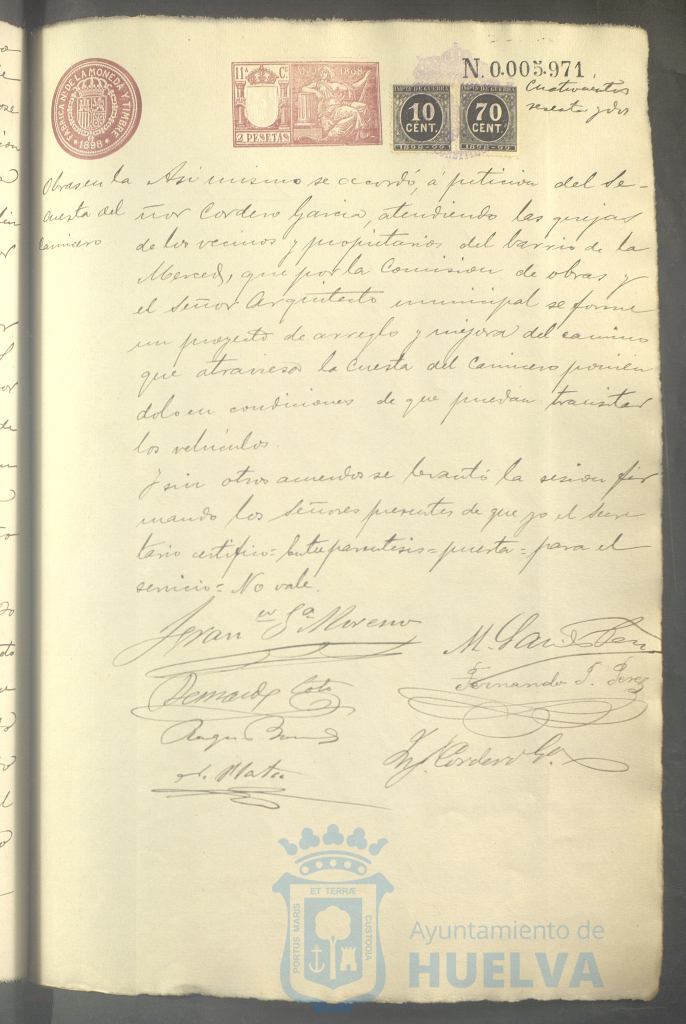 FABRICA Nl. DE LA MONEDA Y TIMBRE
1898
11ª C.
AÑO DE 1898
2 PESETAS
IMPTO DE GUERRA
10
CENT.
1898-99
IMPTO DE GUERRA
70
CENT.
1898-99
N. 0.005.971
Cuatrocientos
sesenta y dos
Obras en la
cuesta del
Carnicero
Asi mismo se acordó, á peticion del Se-
ñor Cordero Garcia, atendiendo las quejas
de los vecinos y propietarios del barrio de la
Merced, que por la Comision de obras y
el Señor Arquitecto municipal se forme
un proyecto de arreglo y mejora del camino
que atraviesa la cuesta del Carnicero ponien
dolo en condiciones de que puedan transitar
los vehiculos.
Y sin otros acuerdos se levantó la sesion fir
mando los Señores presentes de que yo el Secre
tario certifico = Entreparentesis = puesta = para el
servicio = No vale.
Gª Moreno
Fernando T. Perez
A. Mateo
Cordero Gª
PORTUS MARIS
ET TERRÆ
CUSTODIA
Ayuntamiento de
HUELVA